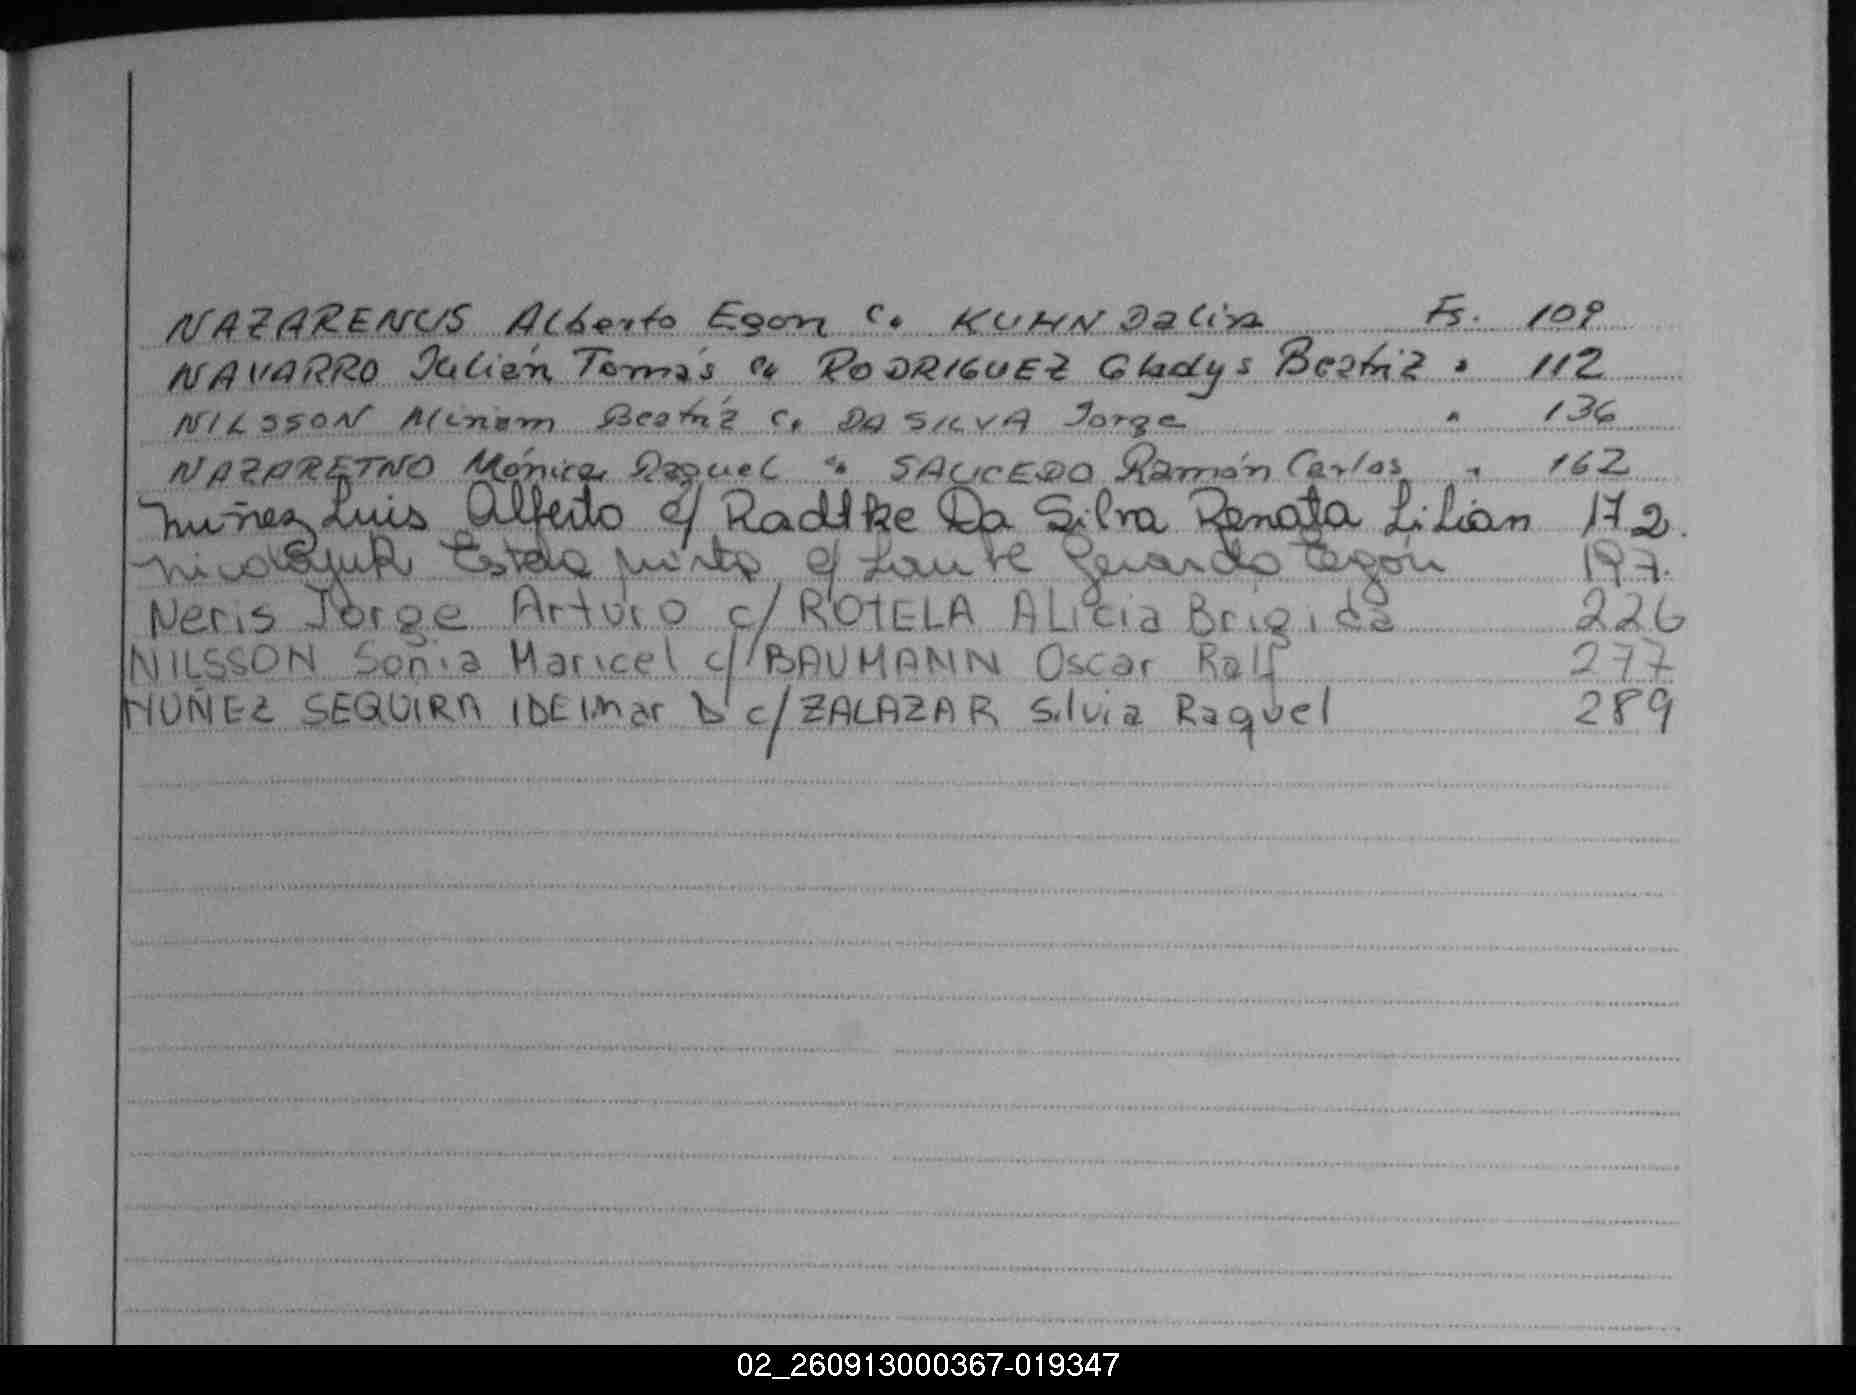 NAZARENUS Alberto Egon c. KUHN Dalira Fs. 109
NAVARRO Julián Tomás c. RODRIGUEZ Gladys Beatriz " 112
NILSSON Miriam Beatriz c. DA SILVA Jorge " 136
NAZARETNO Mónica Raquel c. SAUCEDO Ramón Carlos " 162
Nuñez Luis Alberto c/ Radtke Da Silva Renata Lilian 172.
Estela c/ Gerardo Egon 197.
Neris Jorge Arturo c/ ROTELA ALicia Brigida 226
NILSSON Sonia Maricel c/ BAUMANN Oscar Ralf 277
NUÑEZ SEQUIRA IDElmar D c/ ZALAZAR Silvia Raquel 289
02_260913000367-019347